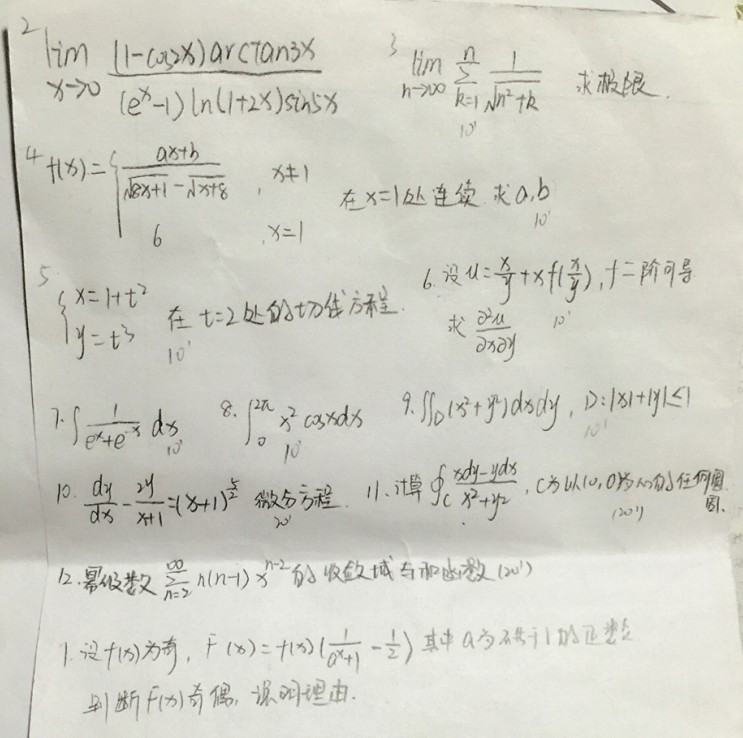 2 lim x→0 (1-cos2x)arctan3x / (e^x-1)ln(1+2x)sin5x
3 lim n→∞ ∑ k=1 n 1/√(n²+k) 求极限. 10'
4 f(x)={ (ax+b)/(√(8x+1)-√(x+8)), x≠1
6 , x=1
在x=1处连续.求a,b 10'
5 { x=1+t²
y=t³
在t=2处的切线方程. 10'
6. 设u=x/y+xf(x/y), f二阶可导
求 ∂²u/∂x∂y 10'
7. ∫ 1/(e^x+e^-x) dx 10'
8. ∫ 0 2π x²cosxdx 10'
9. ∬D(x²+y²)dxdy, D:|x|+|y|≤1 10'
10. dy/dx - 2y/(x+1) =(x+1)^(5/2) 微分方程. 20'
11. 计算∮C (xdy-ydx)/(x²+y²), C为以(0,0)为心的任何圆. (20')
12. 幂级数 ∑ n=2 ∞ n(n-1)x^(n-2) 的收敛域与和函数(20')
1. 设f(x)为奇, F(x)=f(x)(1/(a^x+1) - 1/2) 其中a为不等于1的正数
判断F(x)奇偶, 说明理由.